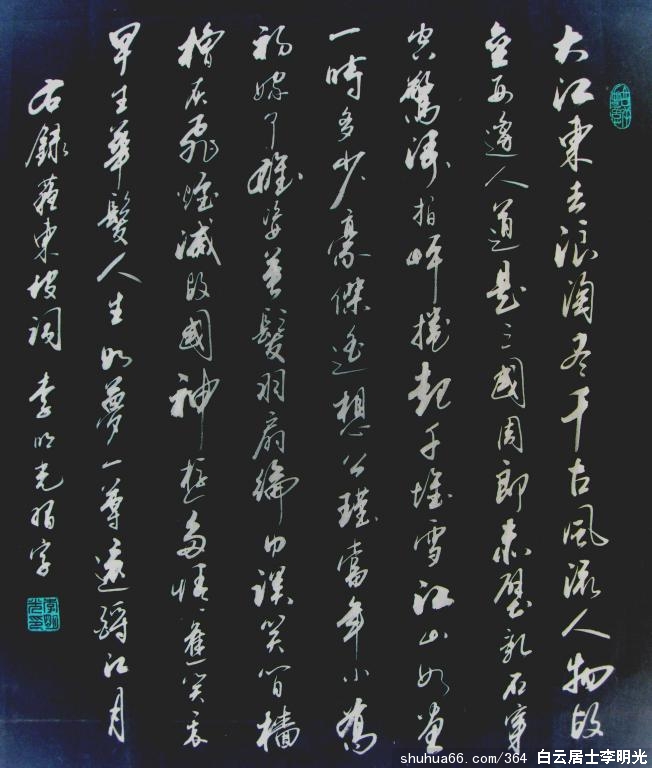 大江東去浪淘尽千古風流人物故
垒西邊人道是三國周郎赤壁乱石穿
空驚涛拍岸捲起千堆雪江山如画
一時多少豪傑遥想公瑾當年小喬
初嫁了雄姿英髮羽扇綸巾談笑间檣
櫓灰飛煙滅故國神遊多情應笑我
早生華髮人生如夢一尊還酹江月
右録蘇東坡詞 李明光習字
李明光印
shuhua66.com/364 白云居士李明光